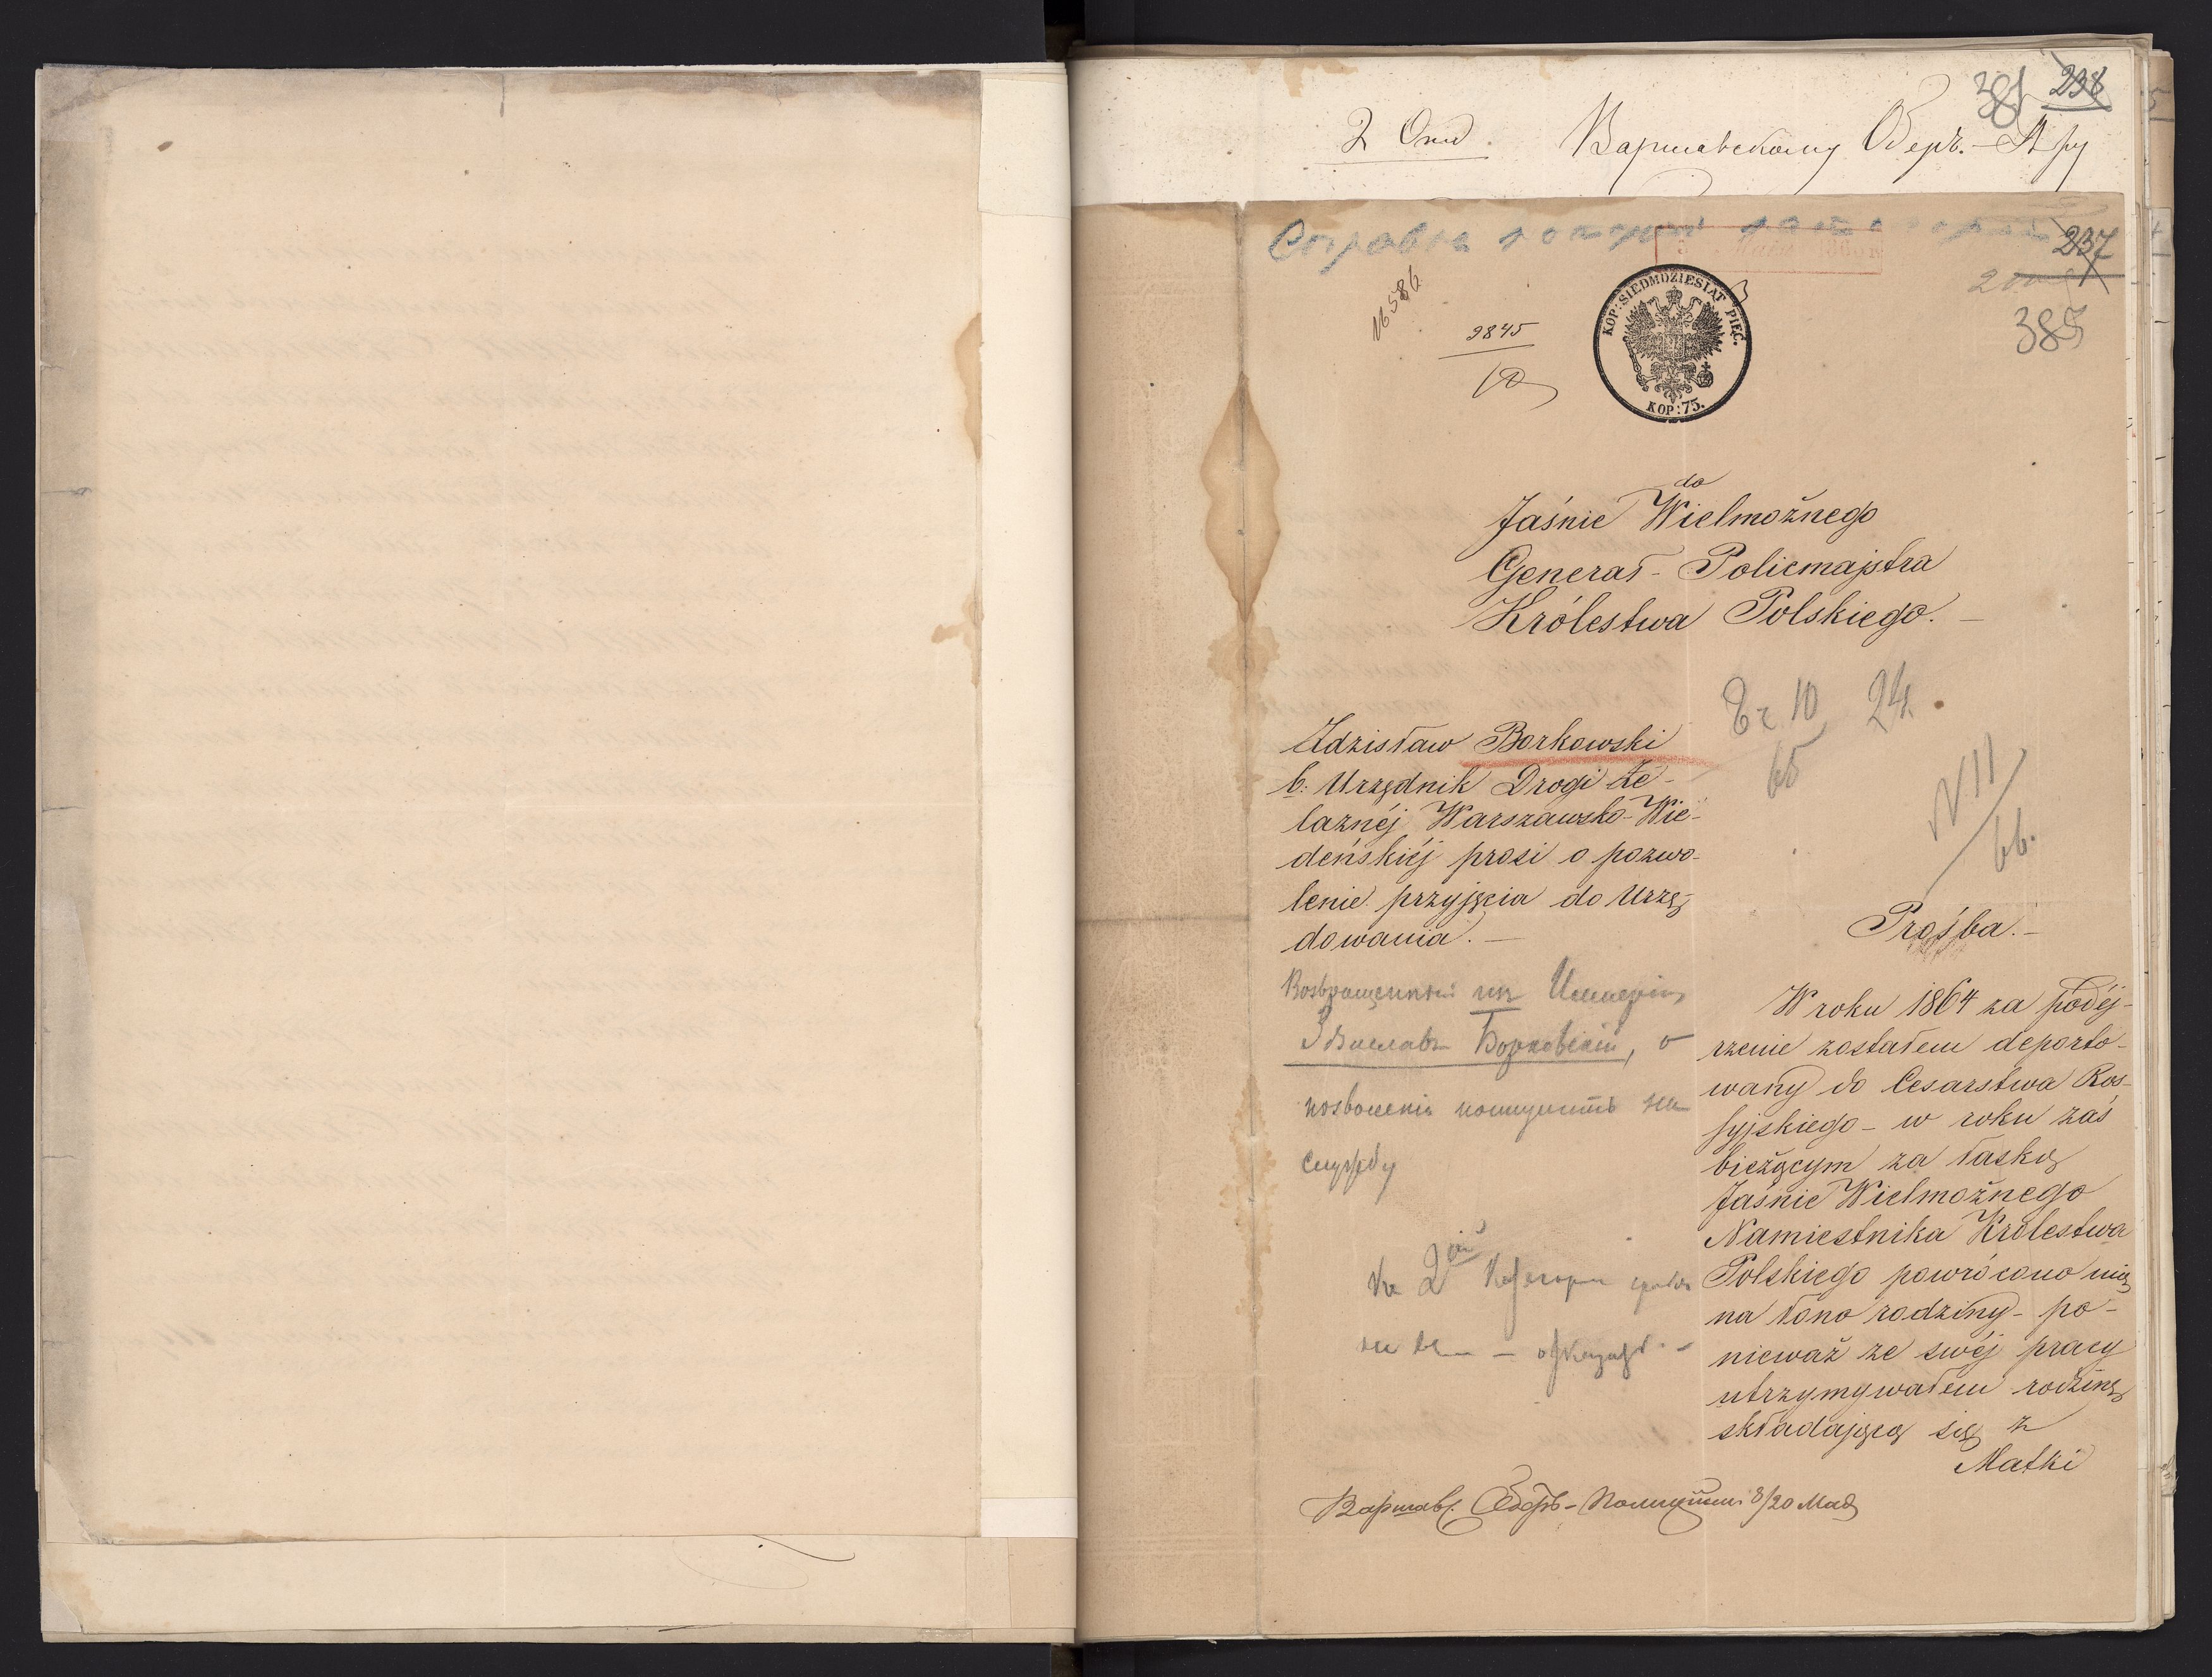 381 238
2 Отд. Варшавскому Оберъ-
237
385
16586
9845
KOP: SIEDMDZIESIĄT PIĘĆ.
KOP: 75.
do
Jaśnie Wielmożnego
Generał-Policmajstra
Królestwa Polskiego.—
10 24.
65
Zdzisław Borkowski
b: Urzędnik Drogi Że-
laznéj Warszawsko-Wie-
deńskiéj prosi o pozwo-
lenie przyjęcia do Urzę-
dowania.—
VII
66.
Prośba.—
Возвращенный из Империи
Здиславъ Борковский, о
позволении поступить на
службу
На 2ой категории
— отказать.—
W roku 1864 za podéj-
rzenie zostałem deporto-
wany do Cesarstwa Ros-
syjskiego – w roku zaś
bieżącym za łaską
Jaśnie Wielmożnego
Namiestnika Królestwa
Polskiego powrócono mię
na łono rodziny – po-
nieważ ze swéj pracy
utrzymywałem rodzinę
składającą się z
Matki
Варшав. Оберъ-Полиций 8/20 Мая